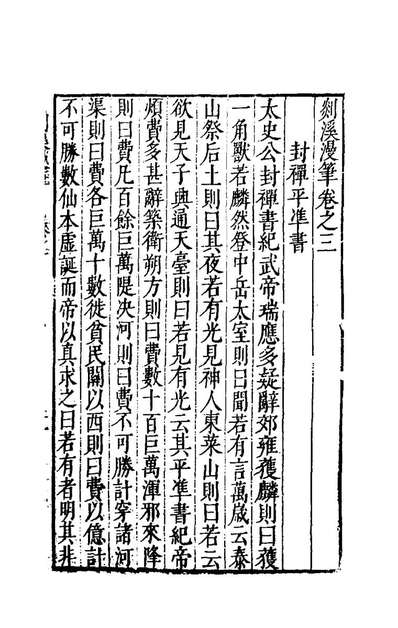 剡溪漫筆卷之三
封禪平準書
太史公封禪書紀武帝瑞應多疑辭郊雍獲麟則曰獲
一角獸若麟然登中岳太室則曰聞若有言萬歲云泰
山祭后土則曰其夜若有光見神人東萊山則曰若云
欲見天子輿通天臺則曰若見有光云其平準書紀帝
煩費多甚辭築衛朔方則曰費數十百巨萬渾邪來降
則曰費凡百餘巨萬隄決河則曰費不可勝計穿諸河
渠則曰費各巨萬十數徙貧民關以西則曰費以億計
不可勝數仙本虛誕而帝以真求之曰若有者明其非